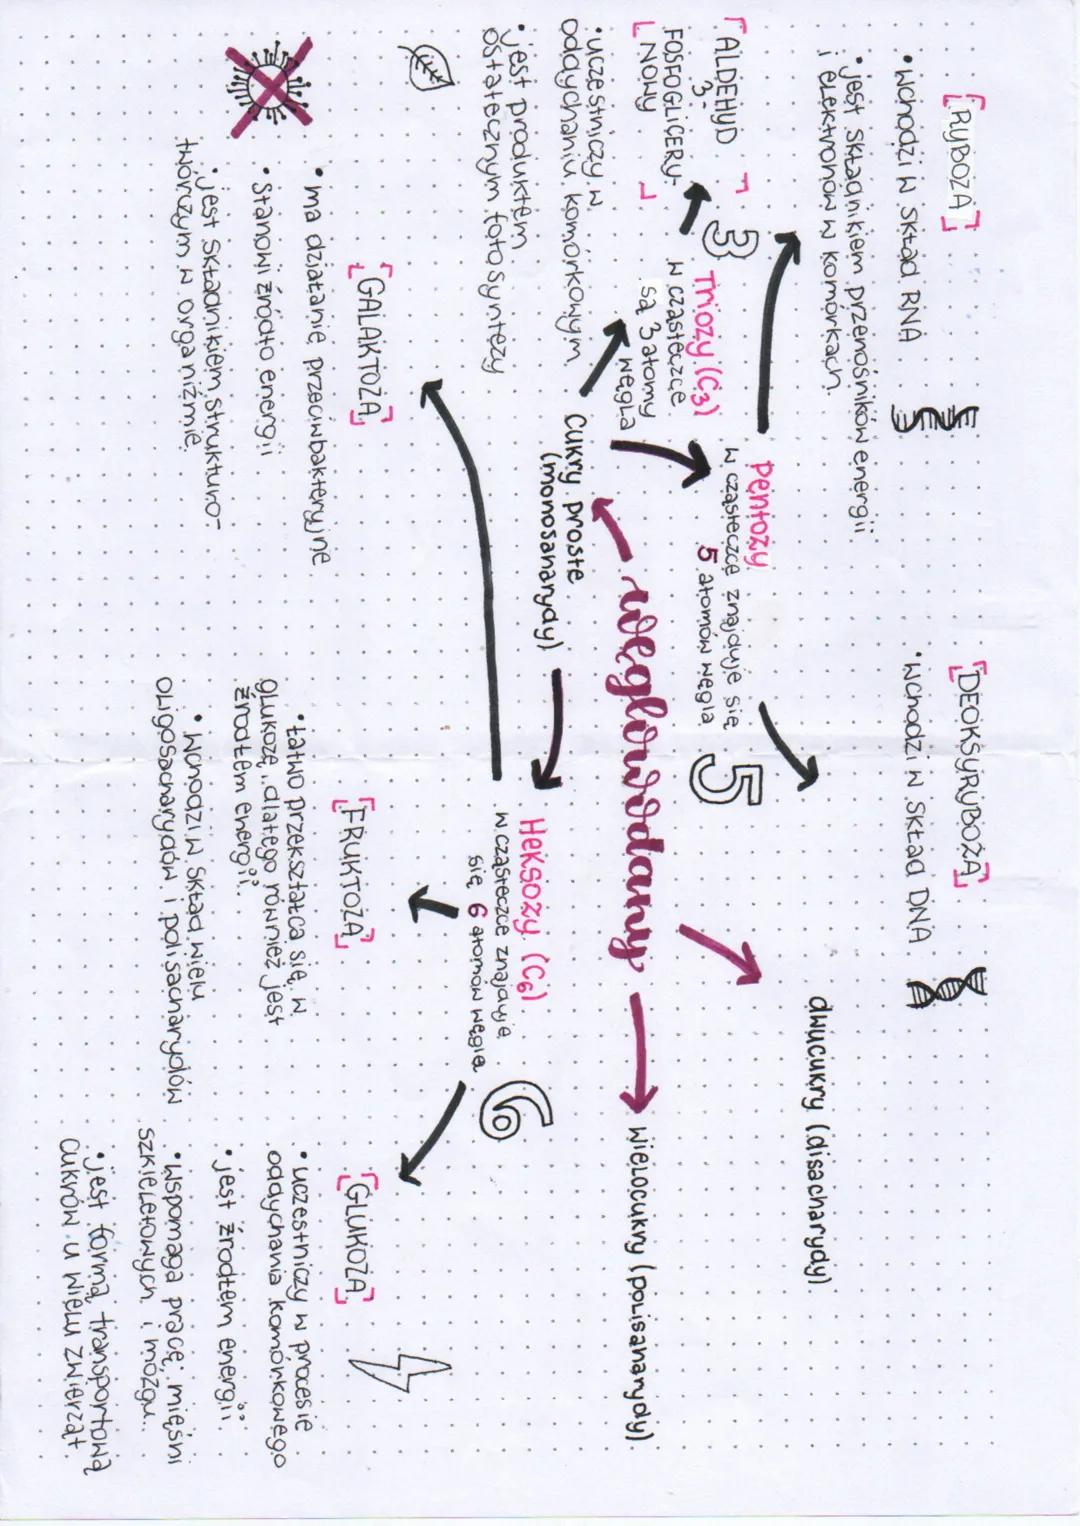 RYBOZA
• wchodzi w skład RNA
• jest składnikiem przenośników energii
i elektronów w komórkach
DEOKSYRYBOZA
• wchodzi w skład DNA
ALDEHYD
3-
FOSFOGLICERY-
NOWY
• uczestniczy w
oddychaniu komórkowym
• jest produktem
ostatecznym fotosyntezy
3
Triozy (C3)
w cząsteczce
są 3 atomy
węgla
Pentozy
w cząsteczce znajduje się
5 atomów węgla
5
dwucukry (disacharydy)
węglowodany
wielocukry (polisaharydy)
Cukry proste
(monosaharydy)
Heksozy (C6)
w cząsteczce znajduje
się 6 atomów węgla
6
GALAKTOZA
• ma działanie przeciwbakteryjne
• stanowi źródło energii
• jest składnikiem strukturo-
twórczym w organizmie
FRUKTOZA
• łatwo przekształca się w
glukozę, dlatego również jest
źródłem energii
• wchodzi w skład wielu
oligosacharydów i polisacharydów
GLUKOZA
• uczestniczy w procesie
oddychania komórkowego
• jest źródłem energii
• wspomaga pracę mięśni
szkieletowych i mózgu
• jest formą transportową
cukrów u wielu zwierząt